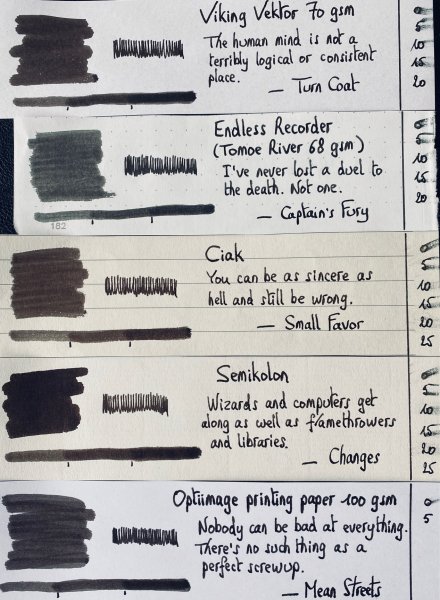 Viking Vektor 70 gsm
The human mind is not a
terribly logical or consistent
place.
— Turn Coat
0
5
10
15
20
Endless Recorder
(Tomoe River 68 gsm)
I've never lost a duel to
the death. Not one.
— Captain's Fury
182
0
5
10
15
20
Ciak
You can be as sincere as
hell and still be wrong.
— Small Favor
0
5
10
15
20
25
Semikolon
Wizards and computers get
along as well as flamethrowers
and libraries.
— Changes
0
5
10
15
20
25
Optiimage printing paper 100 gsm
Nobody can be bad at everything.
There's no such thing as a
perfect screwup.
— Mean Streets
0
5